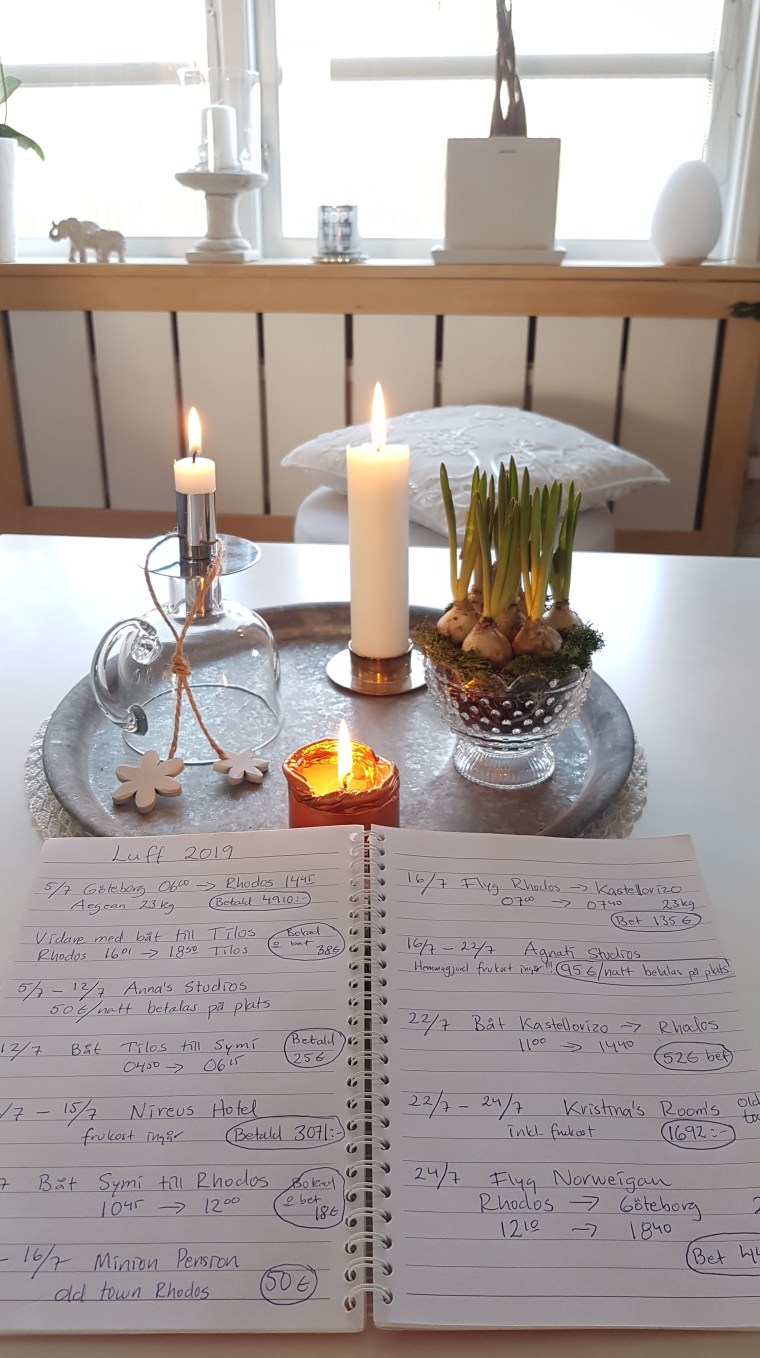 HOPE
Luff 2019
5/7 Göteborg 06⁰⁰ → Rhodos 14⁴⁵
Aegean 23kg Betald 4910:-
Vidare med båt till Tilos Bokad
Rhodos 16⁰¹ → 18⁵⁰ Tilos o bet 38€
5/7 - 12/7 Anna's Studios
50€/natt betalas på plats
12/7 Båt Tilos till Symi Betald
04⁵⁰ → 06¹⁵ 25€
/7 - 15/7 Nireus Hotel
frukost ingår Betald 3071:-
7 Båt Symi till Rhodos Bokad
10⁴⁵ → 12⁰⁰ o bet 18€
- 16/7 Minion Pension
old town Rhodos 50€
16/7 Flyg Rhodos → Kastellorizo
07⁰⁰ → 07⁴⁰ 23kg
Bet 135€
16/7 - 22/7 Agnati Studios
Hemmagjord frukost ingår!!! 95€/natt betalas på plats
22/7 Båt Kastellorizo → Rhodos
11⁰⁰ → 14⁴⁰
52€ bet
22/7 - 24/7 Kristina's Room's old
inkl. frukost 1692:-
24/7 Flyg Norweigan
Rhodos → Göteborg
12¹⁰ → 18⁴⁰
Bet